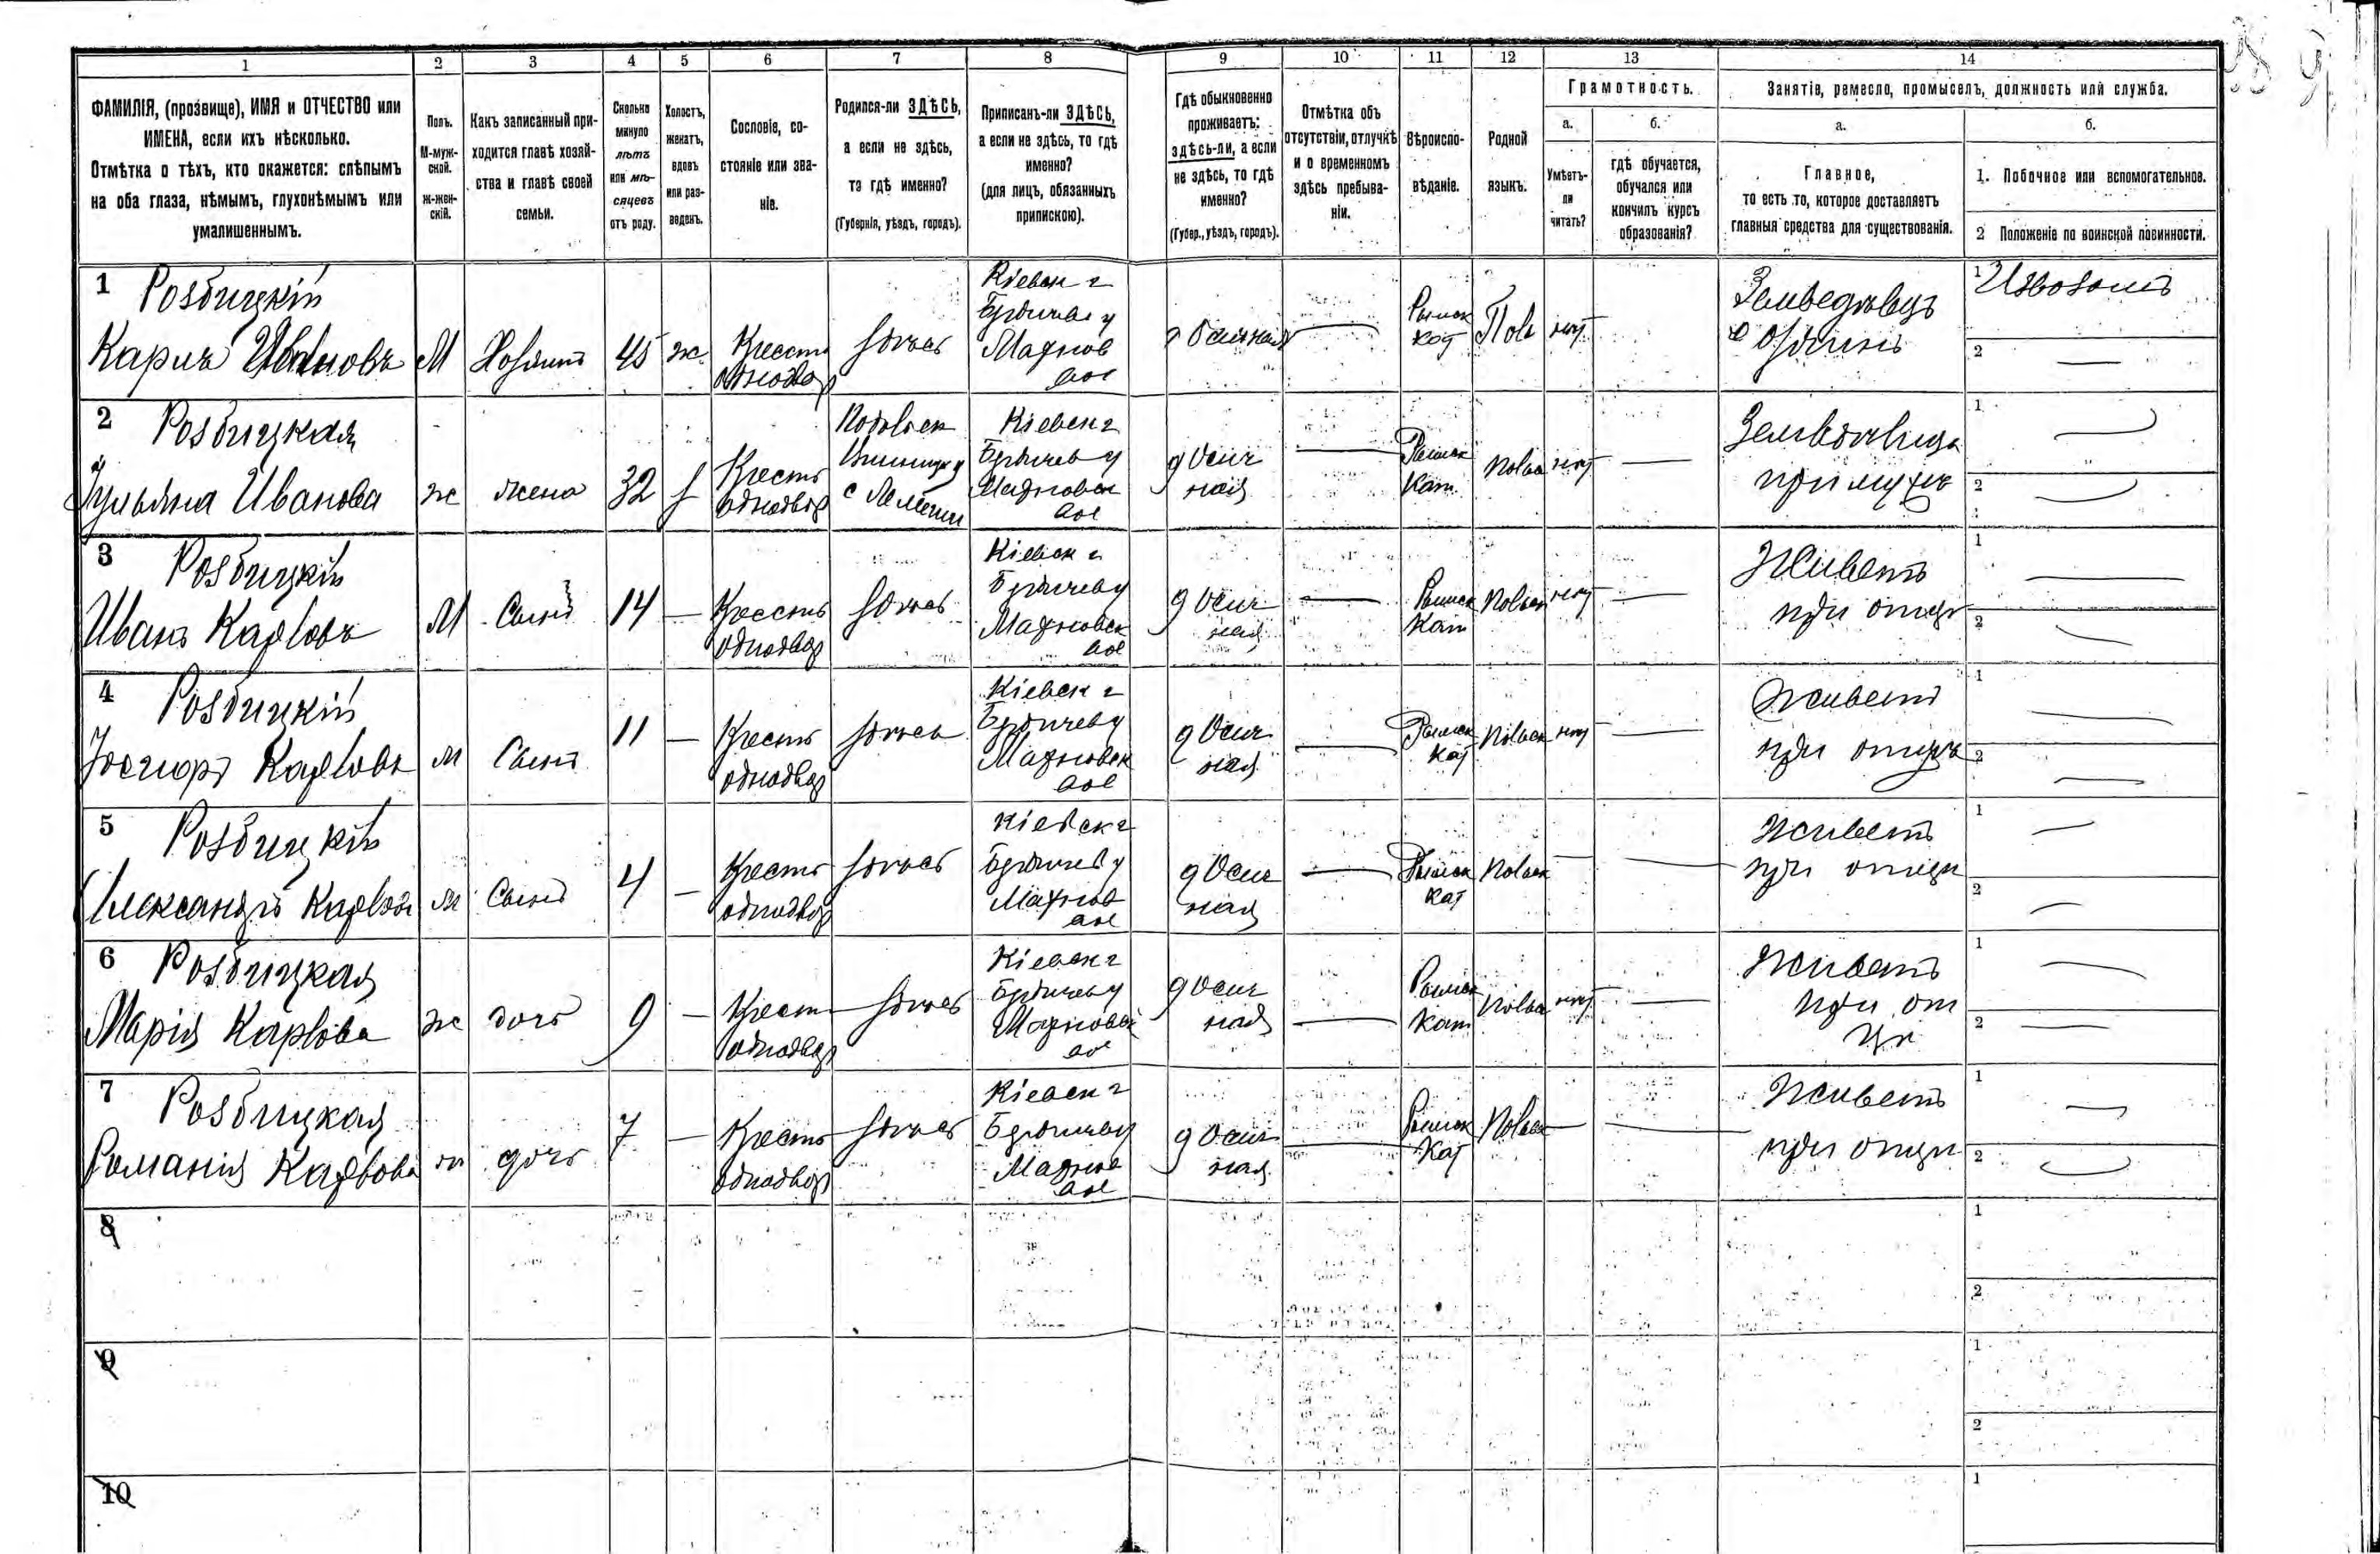 1 2 3 4 5 6 7 8 9 10 11 12 13 14
ФАМИЛІЯ, (прозвище), ИМЯ и ОТЧЕСТВО или
ИМЕНА, если ихъ нѣсколько.
Отмѣтка о тѣхъ, кто окажется: слѣпымъ
на оба глаза, нѣмымъ, глухонѣмымъ или
умалишеннымъ.
Полъ.
М-муж-
ской.
ж-жен-
скій.
Какъ записанный при-
ходится главѣ хозяй-
ства и главѣ своей
семьи.
Сколько
минуло
лѣтъ
или мѣ-
сяцевъ
отъ роду.
Холостъ,
женатъ,
вдовъ
или раз-
веденъ.
Сословіе, со-
стояніе или зва-
ніе.
Родился-ли ЗДѢСЬ,
а если не здѣсь,
то гдѣ именно?
(Губернія, уѣздъ, городъ).
Приписанъ-ли ЗДѢСЬ,
а если не здѣсь, то гдѣ
именно?
(для лицъ, обязанныхъ
припискою).
Гдѣ обыкновенно
проживаетъ:
здѣсь-ли, а если
не здѣсь, то гдѣ
именно?
(Губер., уѣздъ, городъ).
Отмѣтка объ
отсутствіи, отлучкѣ
и о временномъ
здѣсь пребыва-
ніи.
Вѣроиспо-
вѣданіе.
Родной
языкъ.
Грамотность.
а.
Умѣетъ-
ли
читать?
б.
гдѣ обучается,
обучался или
кончилъ курсъ
образованія?
Занятіе, ремесло, промыселъ, должность или служба.
а.
Главное,
то есть то, которое доставляетъ
главныя средства для существованія.
б.
1. Побочное или вспомогательное.
2 Положеніе по воинской повинности.
1 Розбицкій
Карлъ Ивановъ
М
Хозяинъ
45
ж
Крест
однодвор
здѣсь
Кіевск г
Бердичев у
Махнов
вол
Римск
кат
Пол
нет
Земледѣлецъ
1 Извозомъ
2 —
2 Розбицкая
Ульяна Иванова
ж
жена
32
з
Крест
однодвор
Подольск
Винницк у
Кіевск г
Бердичев у
Махновск
вол
д Осич
ная
—
Римск
Кат
Польск
нет
—
при мужѣ
1 —
2 —
3 Розбицкій
Иванъ Карловъ
М
Сынъ
14
—
Крест
однодвор
здѣсь
Кіевск г
Бердичев у
Махновск
вол
д Осич
ная
—
Римск
Кат
Польск
нет
—
Живетъ
при отцѣ
1 —
2 —
4 Розбицкій
Іосифъ Карловъ
м
Сынъ
11
—
Крест
однодвор
здѣсь
Кіевск г
Бердичев у
Махновск
вол
д Осич
ная
—
Римск
Кат
Польск
нет
—
Живетъ
при отцѣ
1 —
2 —
5 Розбицкій
Александръ Карловъ
м
Сынъ
4
—
Крест
однодвор
здѣсь
Кіевск г
Бердичев у
Махнов
вол
д Осич
ная
—
Римск
Кат
Польск
—
—
живетъ
при отцѣ
1 —
2 —
6 Розбицкая
Марія Карлова
ж
дочь
9
—
Крест
однодвор
здѣсь
Кіевск г
Бердичев у
Махновск
вол
д Осич
ная
—
Римск
Кат
Польск
нет
—
Живетъ
при от
цѣ
1 —
2 —
7 Розбицкая
Романія Карлова
ж
дочь
7
—
Крест
однодвор
здѣсь
Кіевск г
Бердичев у
Махнов
вол
д Осич
ная
—
Римск
Кат
Польск
—
—
Живетъ
при отцѣ
1 —
2 —
8
1
2
9
1
2
10
1